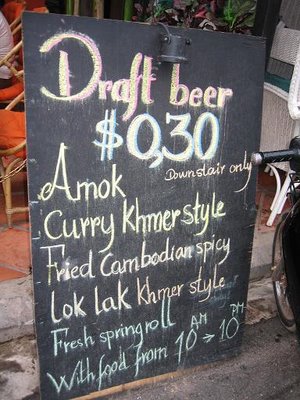 Draft beer
$0,30
Downstair only
Amok
Curry Khmer style
Fried Cambodian spicy
Lok lak Khmer style
Fresh springroll
With food from 10 AM → 10 PM